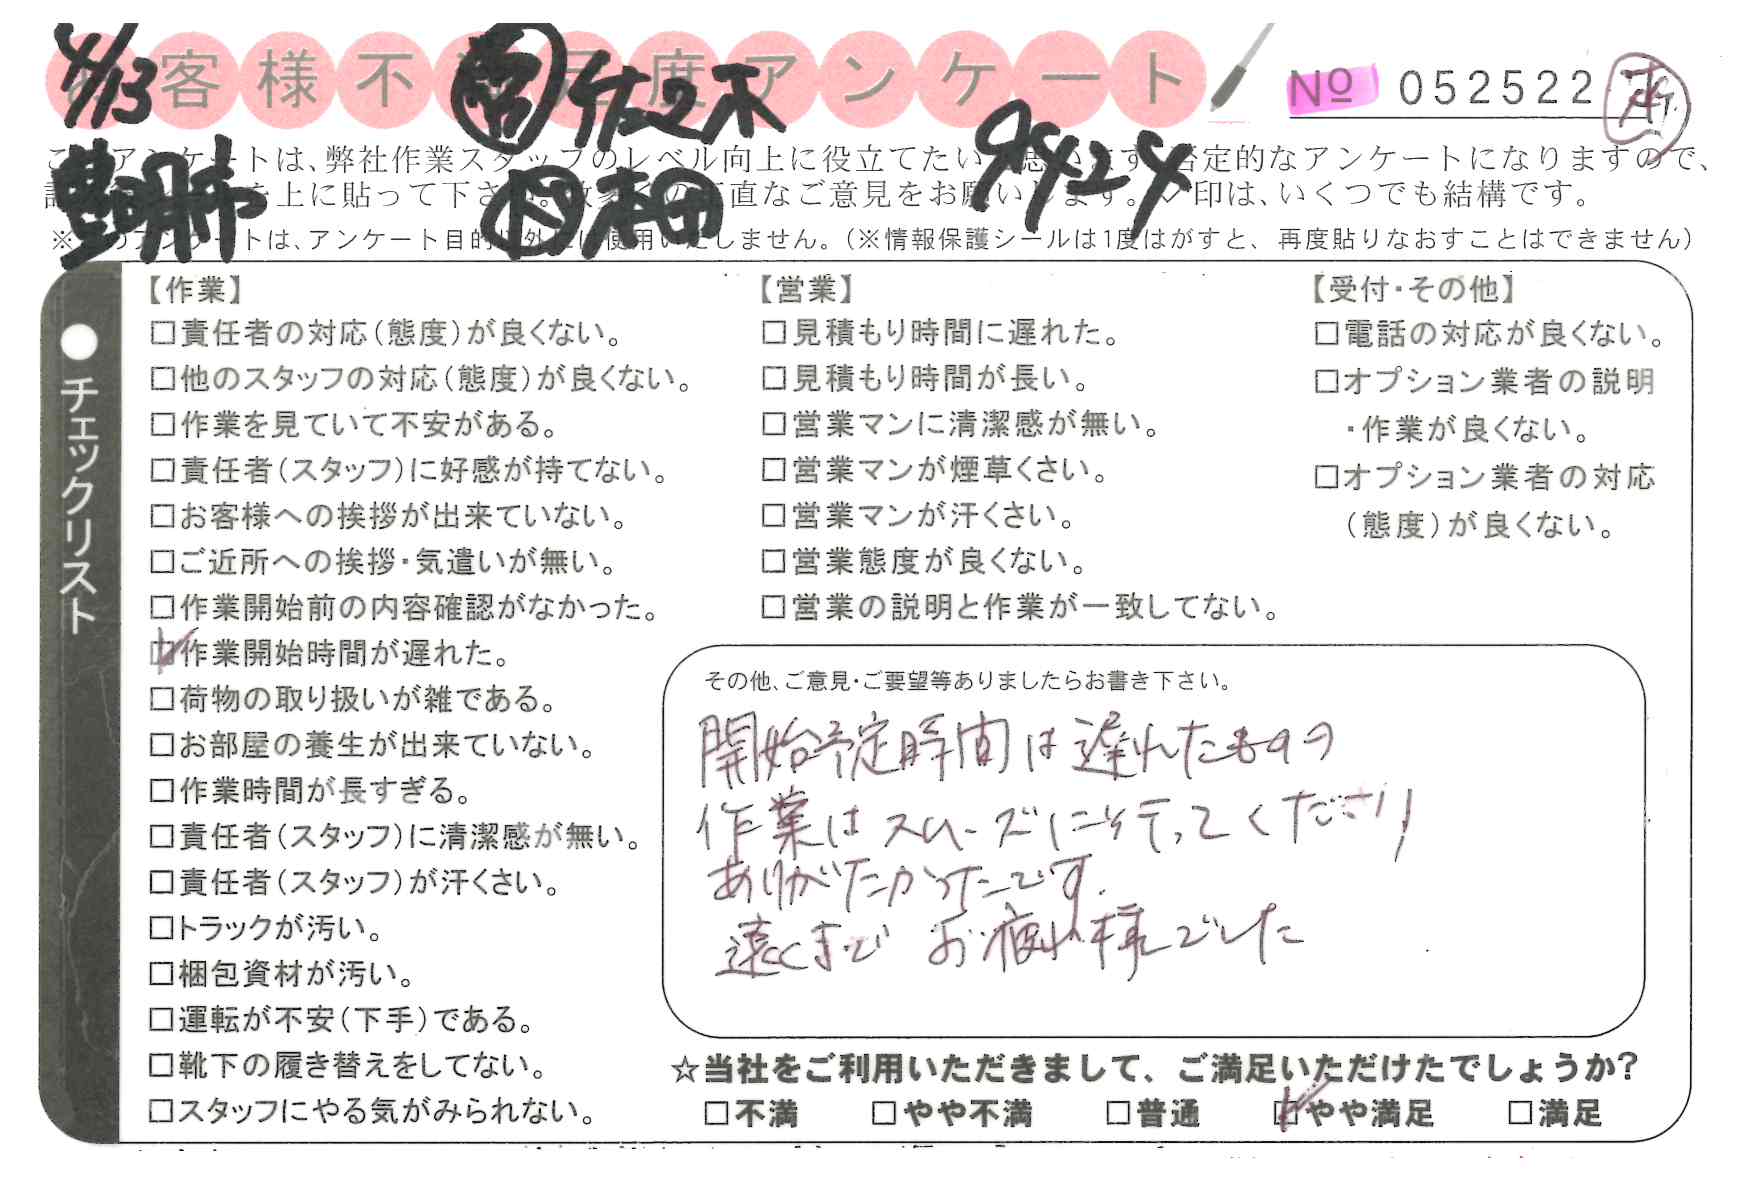 4/13
客様不 足度アンケート
営 佐々木
№ 052522
9424
豊明市
作 本田
アンケートは、弊社作業スタッフのレベル向上に役立てたい 思います 否定的なアンケートになりますので、
を上に貼って下さ 直なご意見をお願いします。✓印は、いくつでも結構です。
※ アンケートは、アンケート目的以外には使用いたしません。(※情報保護シールは1度はがすと、再度貼りなおすことはできません)
●チェックリスト
【作業】
□責任者の対応(態度)が良くない。
□他のスタッフの対応(態度)が良くない。
□作業を見ていて不安がある。
□責任者(スタッフ)に好感が持てない。
□お客様への挨拶が出来ていない。
□ご近所への挨拶・気遣いが無い。
□作業開始前の内容確認がなかった。
☑作業開始時間が遅れた。
□荷物の取り扱いが雑である。
□お部屋の養生が出来ていない。
□作業時間が長すぎる。
□責任者(スタッフ)に清潔感が無い。
□責任者(スタッフ)が汗くさい。
□トラックが汚い。
□梱包資材が汚い。
□運転が不安(下手)である。
□靴下の履き替えをしてない。
□スタッフにやる気がみられない。
【営業】
□見積もり時間に遅れた。
□見積もり時間が長い。
□営業マンに清潔感が無い。
□営業マンが煙草くさい。
□営業マンが汗くさい。
□営業態度が良くない。
□営業の説明と作業が一致してない。
【受付・その他】
□電話の対応が良くない。
□オプション業者の説明
・作業が良くない。
□オプション業者の対応
(態度)が良くない。
その他、ご意見・ご要望等ありましたらお書き下さい。
開始予定時間は遅れたものの
作業はスムーズに行ってくださり
ありがたかったです.
遠くまで お疲れ様でした
☆当社をご利用いただきまして、ご満足いただけたでしょうか?
□不満 □やや不満 □普通 ☑やや満足 □満足